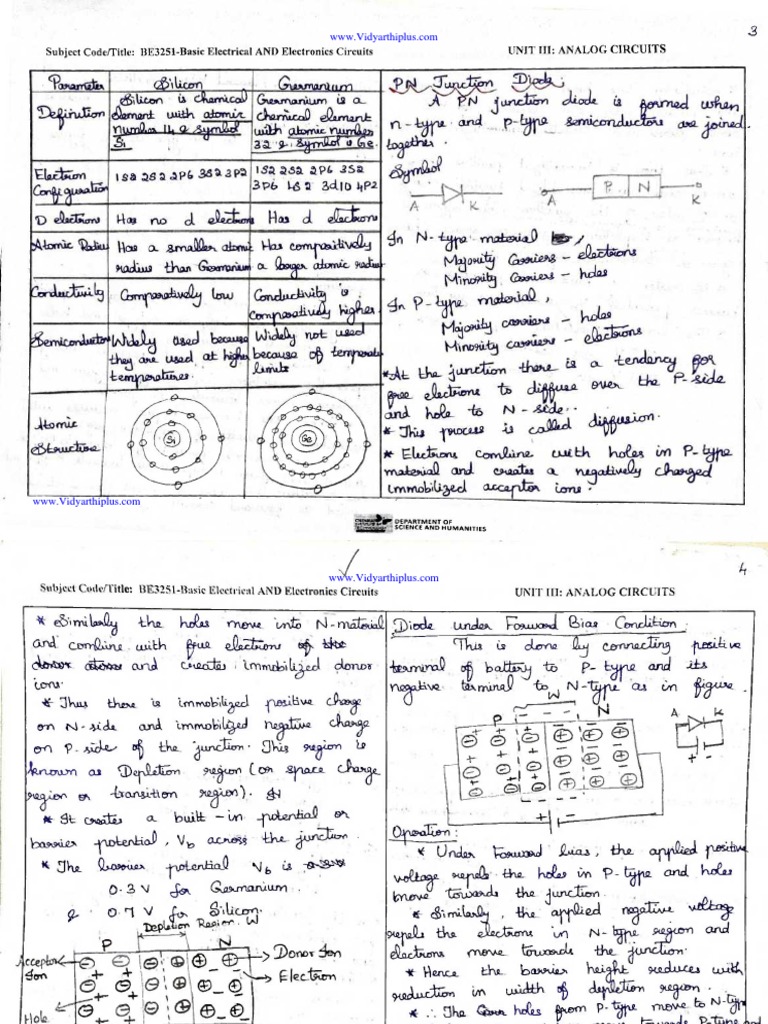 www.Vidyarthiplus.com
3
Subject Code/Title: BE3251-Basic Electrical AND Electronics Circuits UNIT III: ANALOG CIRCUITS
Parameter Silicon Germanium
Definition
Silicon is chemical
element with atomic
number 14 & symbol
Si
Germanium is a
chemical element
with atomic number
32 & symbol is Ge.
Electron
Configuration
1S2 2S2 2P6 3S2 3P2
1S2 2S2 2P6 3S2
3P6 4S2 3d10 4P2
D electrons Has no d electrons Has d electrons
Atomic Radius
Has a smaller atomic
radius than Germanium
Has comparitively
a larger atomic radius
Conductivity
Comparatively low
Conductivity is
comparatively higher.
Semiconductors
Widely used because
they are used at higher
temperatures.
Widely not used
because of temperature
limits
Atomic
Structure
Si
Ge
PN Junction Diode:
A PN junction diode is formed when
n-type and p-type semiconductors are joined
together.
Symbol
A K A P N K
In N-type material,
Majority Carriers - electrons
Minority Carriers - holes
In P-type material,
Majority carriers - holes
Minority carriers - electrons
*At the junction there is a tendency for
free electrons to diffuse over the P-side
and hole to N-side..
* This process is called diffusion.
* Electrons combine with holes in P-type
material and creates a negatively charged
immobilized acceptor ions.
www.Vidyarthiplus.com
DEPARTMENT OF
SCIENCE AND HUMANITIES
4
www.Vidyarthiplus.com
Subject Code/Title: BE3251-Basic Electrical AND Electronics Circuits UNIT III: ANALOG CIRCUITS
* Similarly the holes move into N-material
and combine with free electrons
and creates immobilized donor
ions.
* Thus there is immobilized positive charge
on N-side and immobilized negative charge
on P-side of the junction. This region is
known as Depletion region (or space charge
region or transition region).
* It creates a built-in potential or
barrier potential, Vb across the junction.
* The barrier potential Vb is
0.3 V for Germanium.
& 0.7 V for Silicon.
Depletion Region, W
P N
Acceptor
Ion
Donor Ion
Electron
Hole
Diode under Forward Bias Condition:
This is done by connecting positive
terminal of battery to P-type and its
negative terminal to N-type as in figure.
W
P N
A K
+ -
+ -
Operation:
* Under Forward bias, the applied positive
voltage repels the holes in P-type and holes
move towards the junction.
* Similarly, the applied negative voltage
repels the electrons in N-type region and
electrons move towards the junction.
* Hence the barrier height reduces with
reduction in width of depletion region.
* ∴ The holes from P-type move to N-type
move towards P-type and